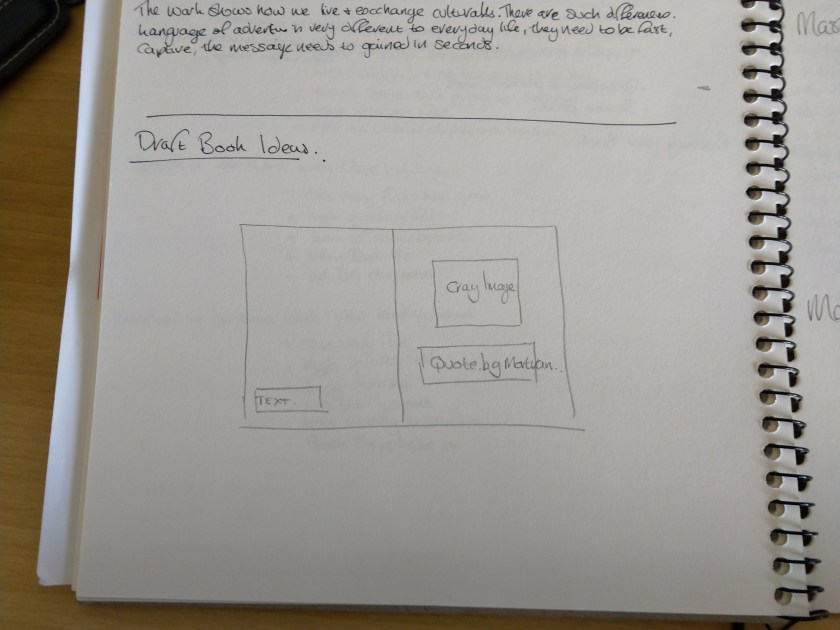 The work shows how we live + eocchange culturalls. There are such differences.
Language of advertun is very different to everyday life, they need to be fast,
Captive, the message needs to gained in seconds.
Draft Book Ideas..
Cray Image
Quote.by
TEXT.
Mas
Mo